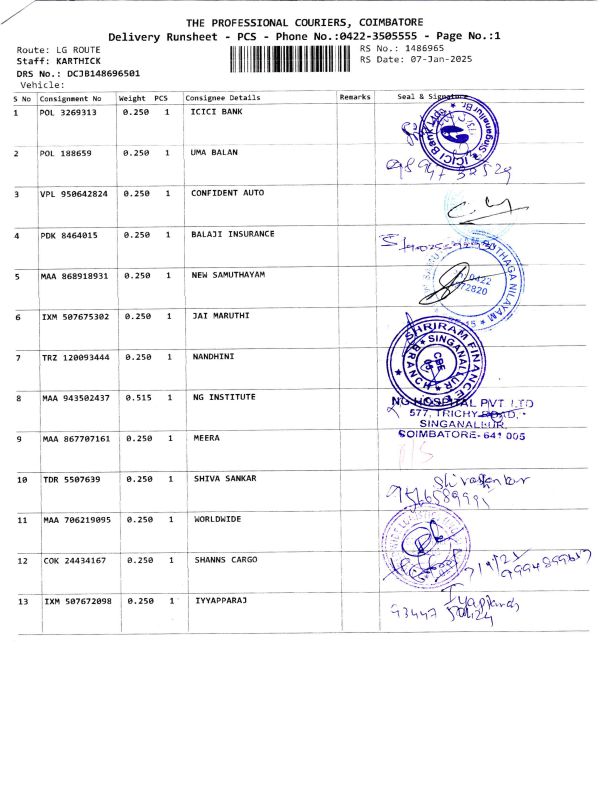 THE PROFESSIONAL COURIERS, COIMBATORE
Delivery Runsheet - PCS - Phone No.:0422-3505555 - Page No.:1
Route: LG ROUTE RS No.: 1486965
Staff: KARTHICK RS Date: 07-Jan-2025
DRS No.: DCJB148696501
Vehicle:
S No Consignment No Weight PCS Consignee Details Remarks Seal & Signature
1 POL 3269313 0.250 1 ICICI BANK
ICICI Bank Singanallur Br.
2 POL 188659 0.250 1 UMA BALAN
3 VPL 950642824 0.250 1 CONFIDENT AUTO
4 PDK 8464015 0.250 1 BALAJI INSURANCE
5 MAA 868918931 0.250 1 NEW SAMUTHAYAM
NILAYAM
0422
6 IXM 507675302 0.250 1 JAI MARUTHI
SHRIRAM FINANCE
SINGANALLUR
BRANCH
CBE
7 TRZ 120093444 0.250 1 NANDHINI
8 MAA 943502437 0.515 1 NG INSTITUTE
NG HOSPITAL PVT LTD
577, TRICHY ROAD,
SINGANALLUR,
COIMBATORE-641 005
9 MAA 867707161 0.250 1 MEERA
10 TDR 5507639 0.250 1 SHIVA SANKAR
Shivashankar
11 MAA 706219095 0.250 1 WORLDWIDE
12 COK 24434167 0.250 1 SHANNS CARGO
13 IXM 507672098 0.250 1 IYYAPPARAJ